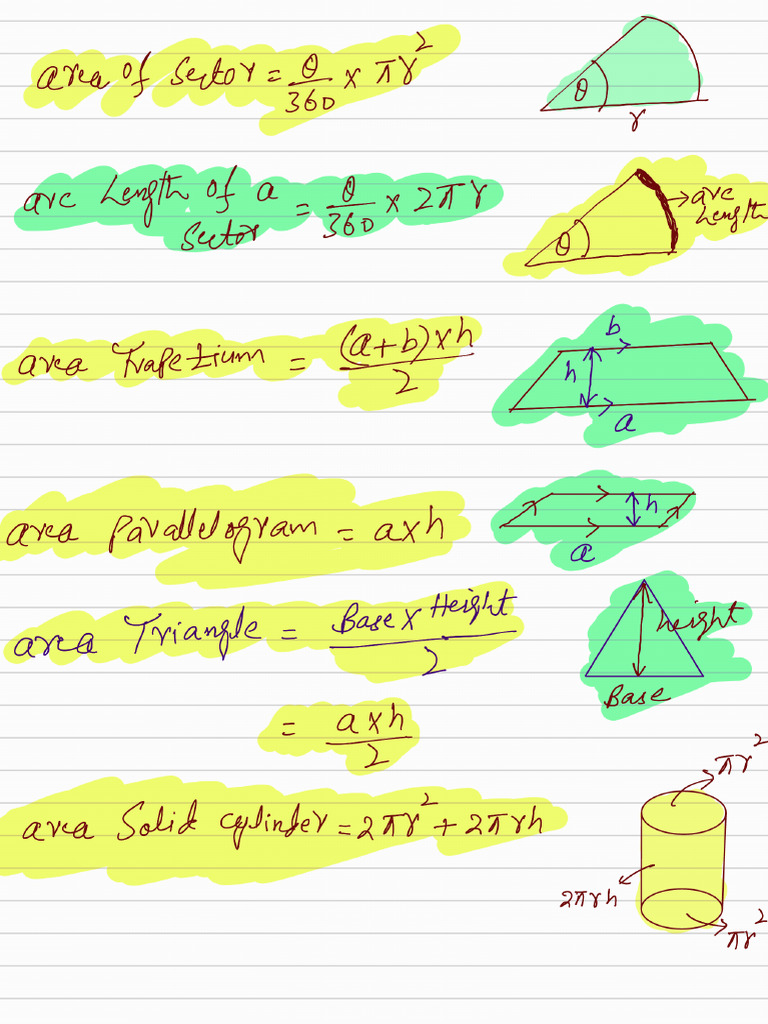 area of sector = θ/360 × πr²
θ
r
arc Length of a sector = θ/360 × 2πr
θ
arc Length
area Trapezium = (a+b)×h/2
b
h
a
area Parallelogram = a×h
h
a
area Triangle = Base × Height/2
height
Base
= a×h/2
area Solid cylinder = 2πr² + 2πrh
πr²
2πrh
πr²